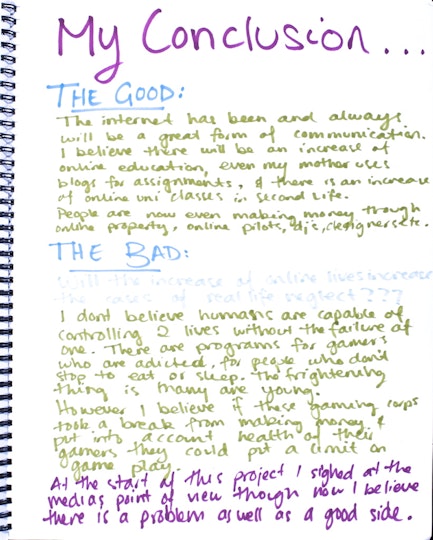 My Conclusion...
THE GOOD:
The internet has been and always
will be a great form of communication.
I believe there will be an increase of
online education, even my mother uses
blogs for assignments, & there is an increase
of online uni classes in second life.
People are now even making money though
online property, online pilots, dj's, designers etc.
THE BAD:
Will the increase of online lives increase
the cases of real life neglect???
I dont believe humans are capable of
controlling 2 lives without the failure of
one. There are programs for gamers
who are adicted, for people who don't
stop to eat or sleep. the frightening
thing is many are young.
However I believe if these gaming corps
took a break from making money &
put into account health of their
gamers they could put a limit on
game play.
At the start of this project I sighed at the
medias point of view though now I believe
there is a problem aswell as a good side.